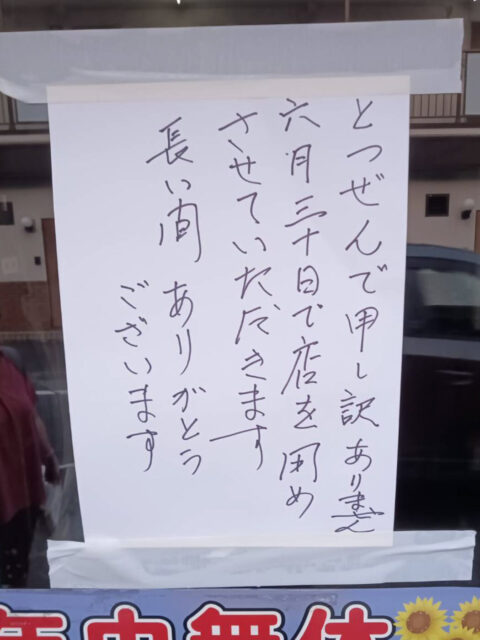 とつぜんで申し訳ありません
六月三十日で店を閉め
させていただきます
長い間 ありがとう
ございます
年中無休